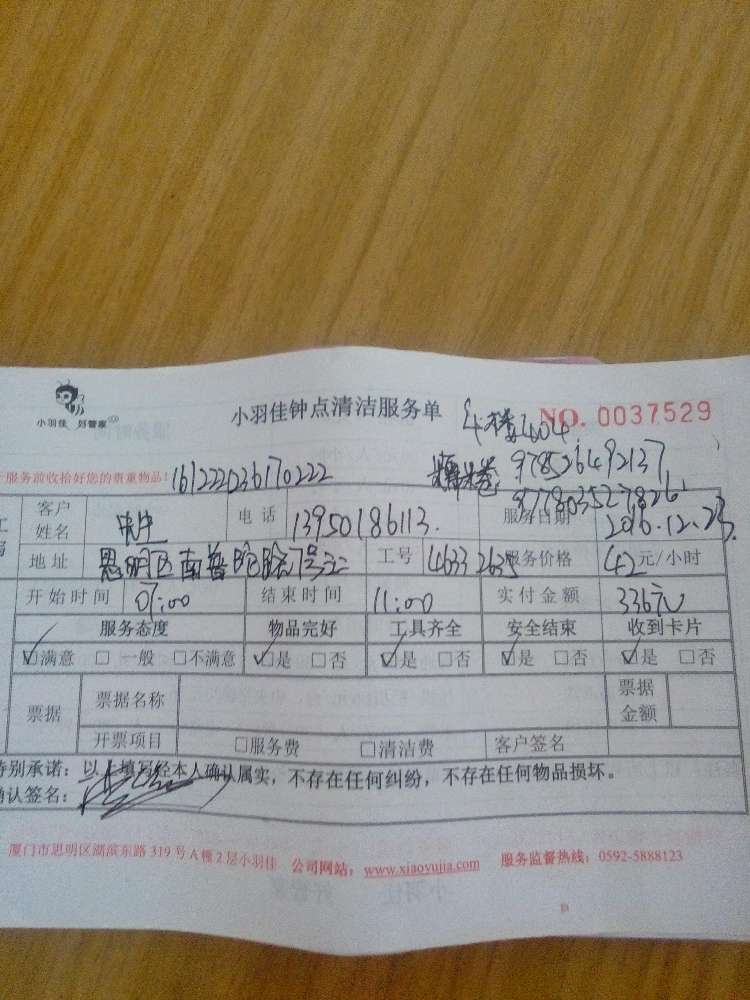 小羽佳 好管家
小羽佳钟点清洁服务单
NO. 0037529
服务前收拾好您的贵重物品!
161222036170222
978526492137
客户姓名
电话 13950186113.
服务日期 2016.12.23
地址 思明区南普陀
工号 4633 2635
服务价格 42元/小时
开始时间 07:00
结束时间 11:00
实付金额 336元
服务态度 物品完好 工具齐全 安全结束 收到卡片
☑满意 □一般 □不满意 ☑是 □否 ☑是 □否 ☑是 □否 ☑是 □否
票据
票据名称
票据金额
开票项目 □服务费 □清洁费 客户签名
特别承诺：以上填写经本人确认属实，不存在任何纠纷，不存在任何物品损坏。
确认签名：
厦门市思明区湖滨东路319号A幢2层小羽佳 公司网站：www.xiaoyujia.com 服务监督热线：0592-5888123